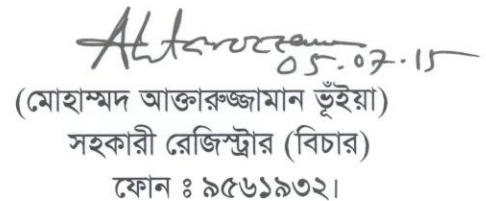 Aktaruzzaman
05.07.15
(মোহাম্মদ আক্তারুজ্জামান ভূঁইয়া)
সহকারী রেজিস্ট্রার (বিচার)
ফোন ঃ ৯৫৬১৯৩২।